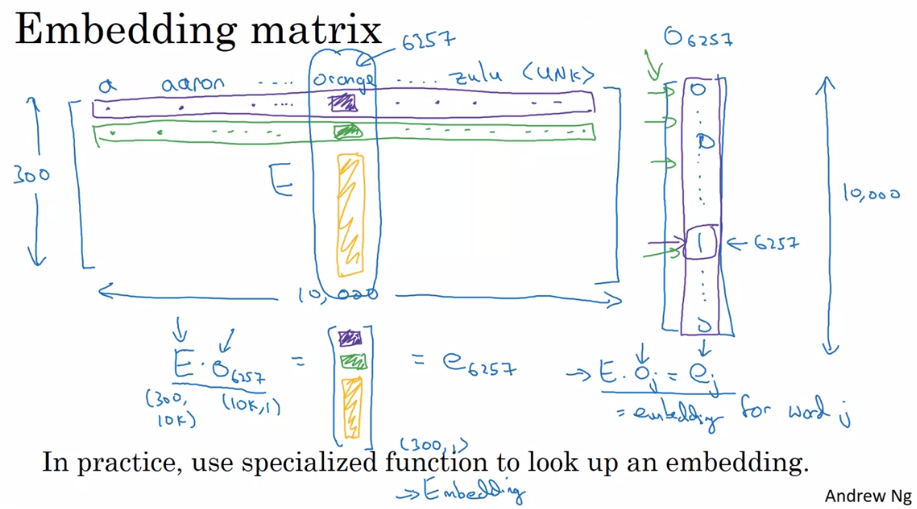 Embedding matrix
6257
O6257
a aaron ..... orange ..... zulu <UNK>
0
0
300
E
10,000
1 ← 6257
10,000
0
E · o6257 = [ ] = e6257
(300, 10K) (10K, 1)
(300, 1)
→ E · oj = ej
= embedding for word j
In practice, use specialized function to look up an embedding.
→ Embedding
Andrew Ng